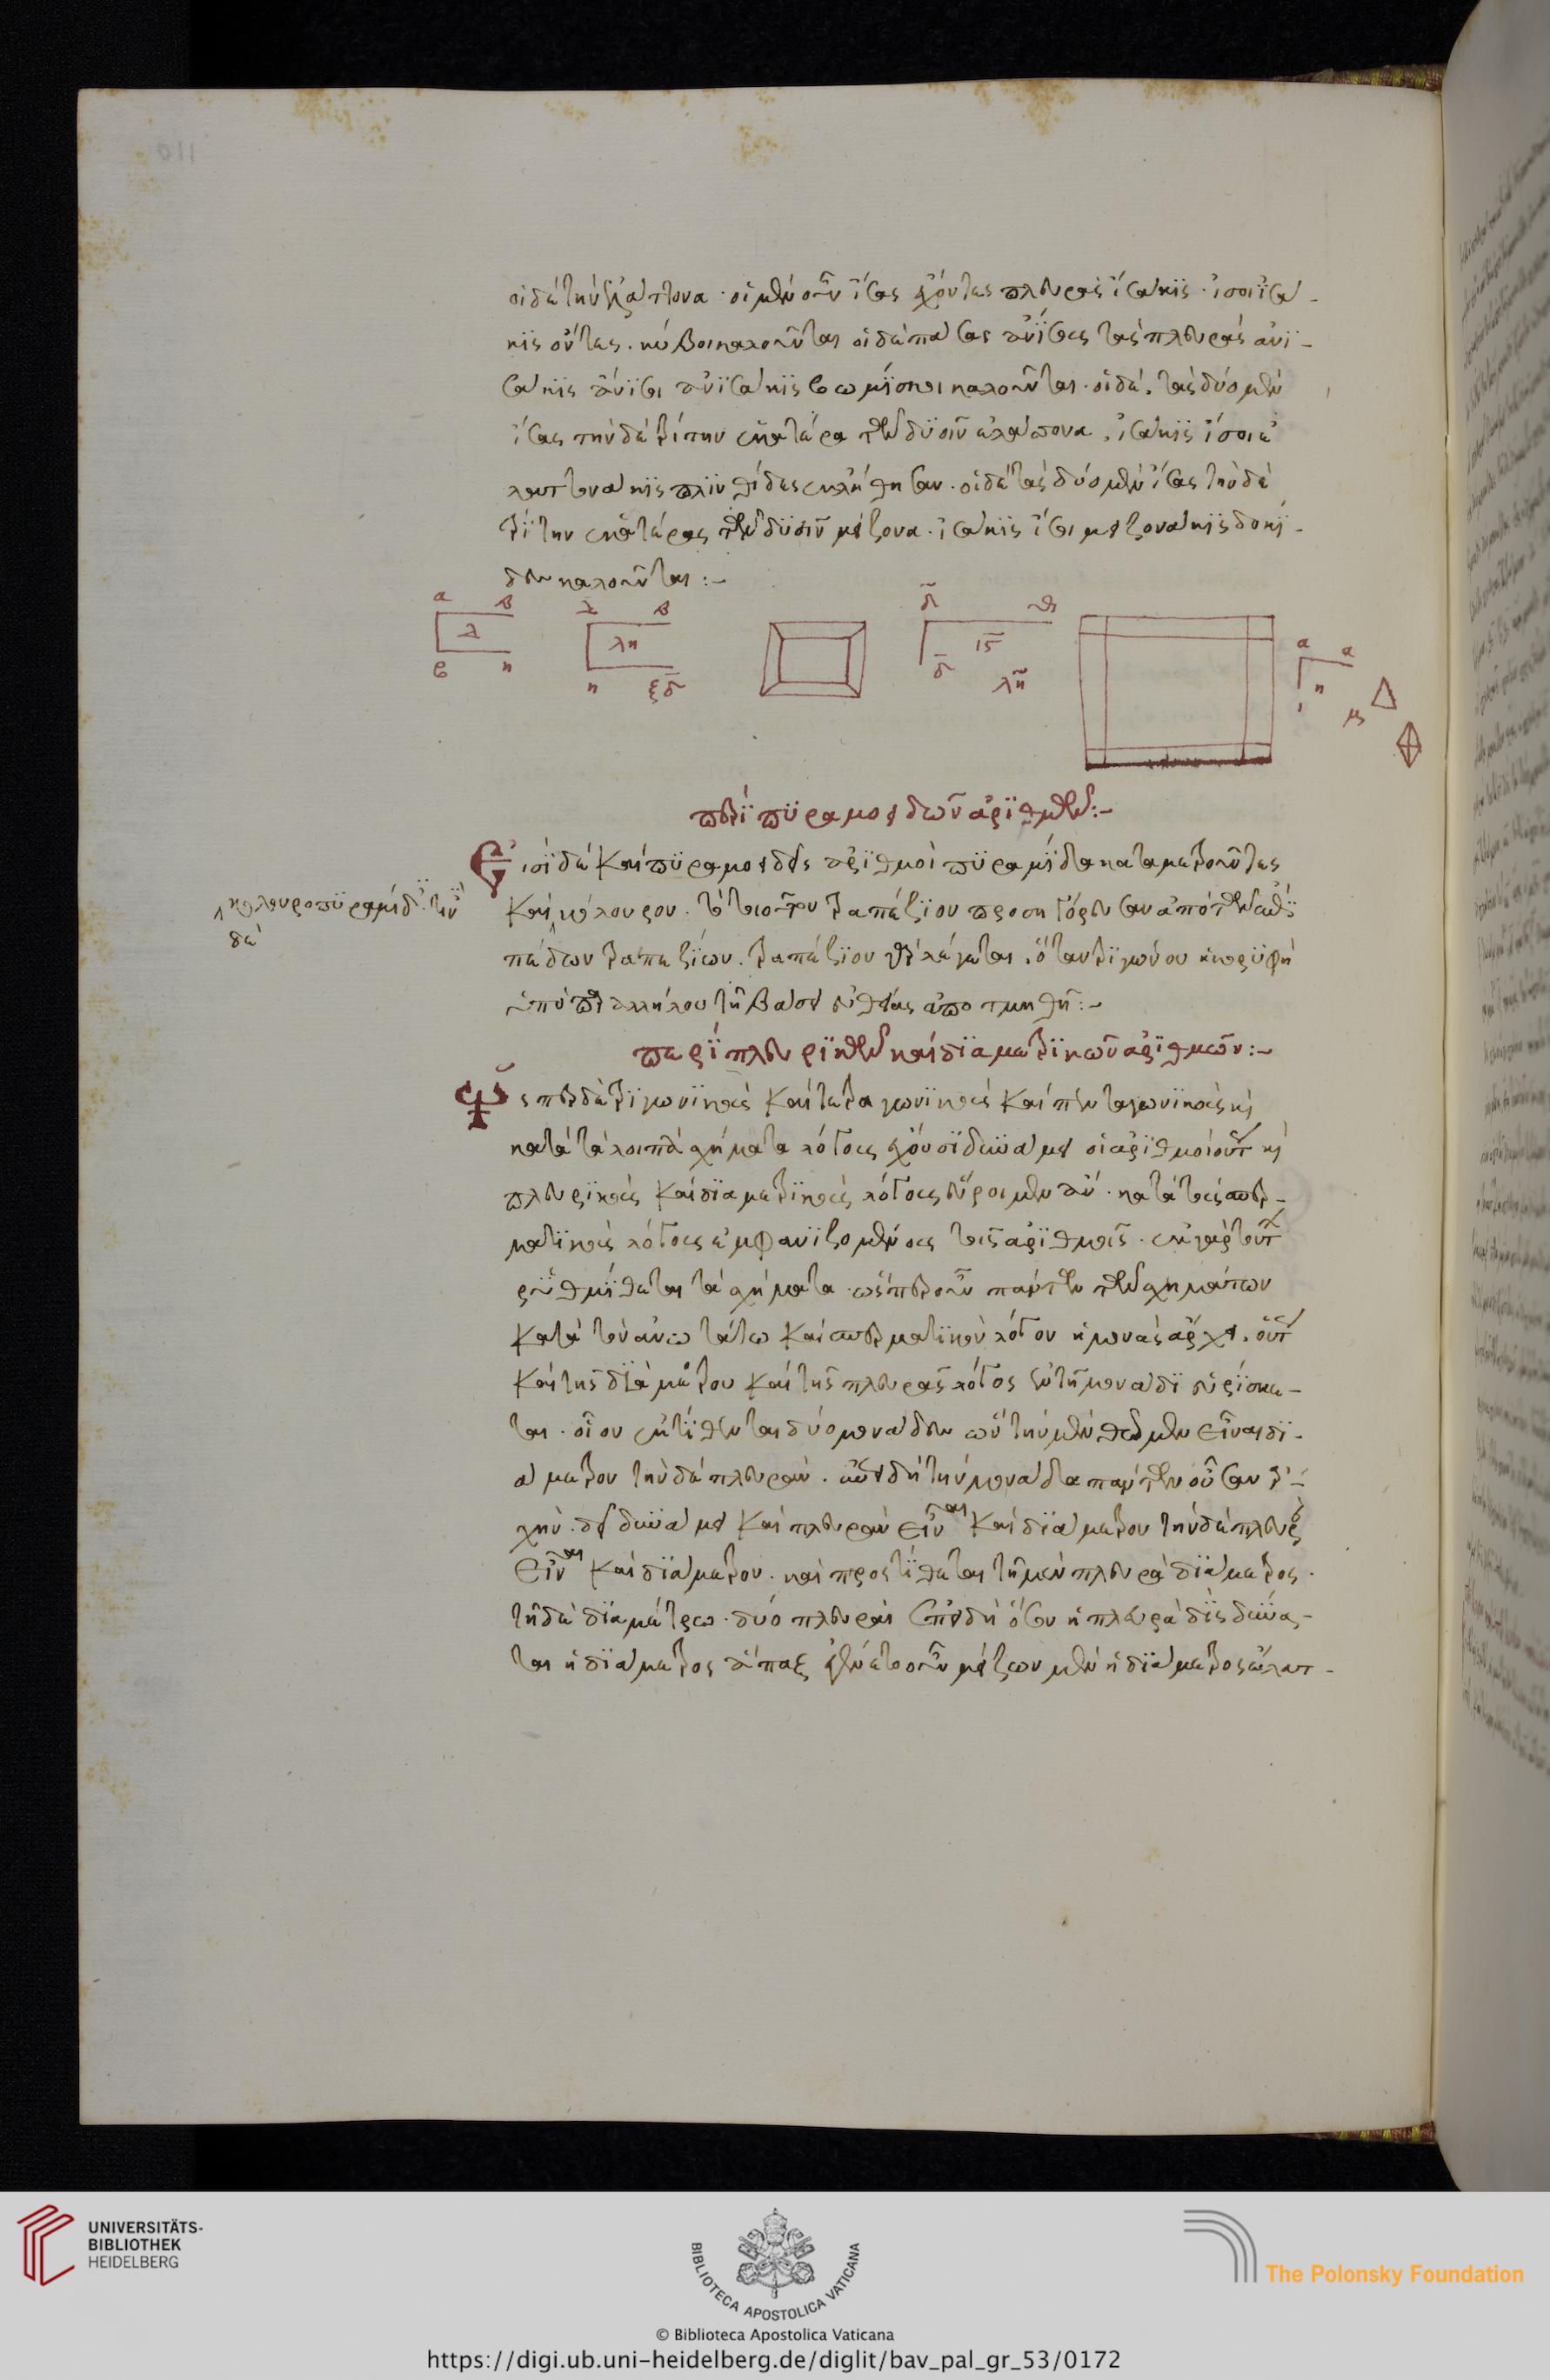 οἱ δὲ τὴν ἐλάττονα· οἱ μὲν οὖν ἴσας ἔχοντες πλευρὰς ἰσάκις· ἴσοι ἰσά-
κις ὄντες. κύβοι καλοῦνται οἱ δὲ πάσας ἀνίσους τὰς πλευρὰς ἀνι-
σάκις ἄνισοι ἀνισάκις βωμίσκοι καλοῦνται. οἱ δὲ. τὰς δύο μὲν
ἴσας τὴν δὲ τρίτην ἑκατέρα τῶν δυσὶν ἐλάττονα. ἰσάκις ἴσοι ἐ
λαττονάκις πλινθίδες ἐκλήθησαν. οἱ δὲ τὰς δύο μὲν ἴσας τὴν δὲ
τρίτην ἑκατέρας τῶν δυσὶν μείζονα. ἰσάκις ἴσοι μειζονάκις δοκί-
δες καλοῦνται :-
α β
λ
η
β
λη
η ξδ
δ
ιϛ
δ
λη
α α
η
περὶ πυραμοειδῶν ἀριθμῶν:-
Εἰσὶ δὲ καὶ πυραμοειδεῖς ἀριθμοὶ πυραμίδας καταμετροῦντες
καὶ κόλουρον. τραπέζιον προσηγόρευσαν ἀπὸ τῶν ἐπι
πέδων τραπεζίων. τραπέζιον γὰρ λέγεται. ὅταν τριγώνου ἡ κορυφὴ
ὑπὸ παραλλήλου τῇ βάσει εὐθείας ἀποτμηθῇ:-
περὶ πλευρικῶν καὶ διαμετρικῶν ἀριθμῶν:-
Ὥσπερ δὲ τριγωνικοὺς καὶ τετραγωνικοὺς καὶ πενταγωνικοὺς καὶ
κατὰ τὰ λοιπὰ σχήματα λόγους ἔχουσι δυνάμει οἱ ἀριθμοὶ οὕτως καὶ
πλευρικοὺς καὶ διαμετρικοὺς λόγους εὕροιμεν ἂν. κατὰ τοὺς σπερ-
ματικοὺς λόγους ἐμφανιζομένους τοῖς ἀριθμοῖς. ἐκ γὰρ τούτων
ῥυθμίζεται τὰ σχήματα. ὥσπερ οὖν πάντων τῶν σχημάτων
κατὰ τὸν ἀνωτάτω καὶ σπερματικὸν λόγον ἡ μονὰς ἄρχει. οὕτως
καὶ τῆς διαμέτρου καὶ τῆς πλευρᾶς λόγος ἐν τῇ μονάδι εὑρίσκε-
ται. οἷον ἐκτίθενται δύο μονάδες ὧν τὴν μὲν θῶμεν εἶναι δι-
άμετρον τὴν δὲ πλευράν. ἐπειδὴ τὴν μονάδα πάντων οὖσαν ἀρ-
χὴν. δεῖ δυνάμει καὶ πλευρὰν εἶναι καὶ διάμετρον τὴν δὲ πλευρ
εἶναι καὶ διάμετρον. καὶ προστίθεται τῇ μὲν πλευρᾷ διάμετρος.
τῇ δὲ διαμέτρῳ. δύο πλευραὶ ἐπειδὴ ὅσον ἡ πλευρὰ δὶς δύνα-
ται ἡ διάμετρος ἅπαξ ἐγένετο οὖν μείζων μὲν ἡ διάμετρος ἐλατ-
UNIVERSITÄTS-
BIBLIOTHEK
HEIDELBERG
BIBLIOTECA APOSTOLICA VATICANA
© Biblioteca Apostolica Vaticana
The Polonsky Foundation
https://digi.ub.uni-heidelberg.de/diglit/bav_pal_gr_53/0172